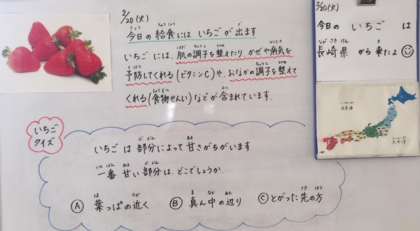 2/20(火)
今日の給食にはいちごが出ます
いちごには、肌の調子を整えたり かぜや病気を
予防してくれる(ビタミンC)や、おなかの調子を整えて
くれる(食物せんい)などが含まれています。
いちご
クイズ
いちごは 部分によって 甘さがちがいます
一番 甘い部分は、どこでしょうか
Ⓐ 葉っぱの近く Ⓑ 真ん中の辺り Ⓒ とがった先の方
2/20(火)
今日の いちご は
長崎県 から来たよ